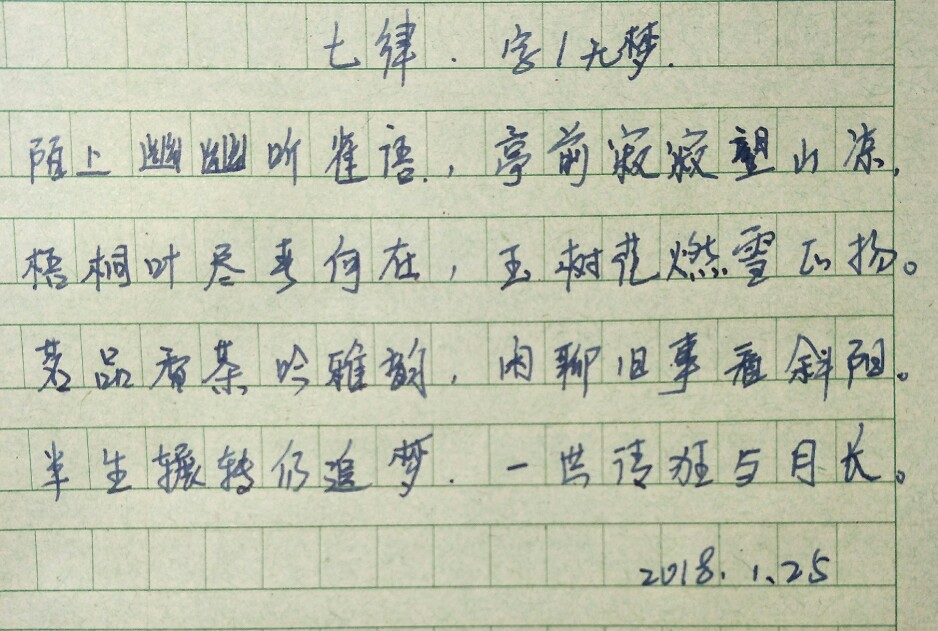 七律.字1无梦.
陌上幽幽听雀语,亭前寂寂望山凉,
梧桐叶尽春何在,玉树花燃雪正扬。
茗品香茶吟雅韵,闲聊旧事看斜阳。
半生辗转仍追梦.一世清狂与月长。
2018.1.25